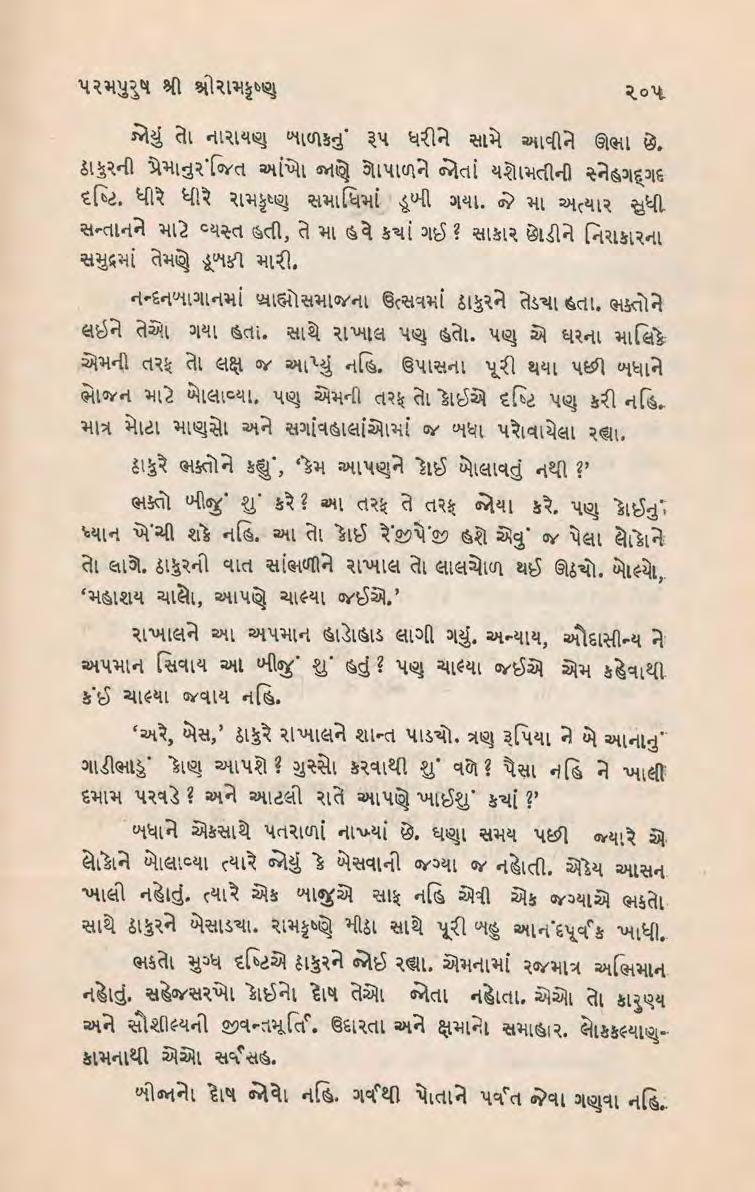 પરમપુરુષ શ્રી શ્રીરામકૃષ્ણ ૨૦૫
જોયું તો નારાયણ બાળકનું રૂપ ધરીને સામે આવીને ઊભા છે.
ઠાકુરની પ્રેમાનુરંજિત આંખો જાણે ગોપાળને જોતાં યશોમતીની સ્નેહગદ્ગદ
દૃષ્ટિ. ધીરે ધીરે રામકૃષ્ણ સમાધિમાં ડૂબી ગયા. જે મા અત્યાર સુધી
સન્તાનને માટે વ્યસ્ત હતી, તે મા હવે કયાં ગઈ ? સાકાર છોડીને નિરાકારના
સમુદ્રમાં તેમણે ડૂબકી મારી.
નન્દનબાગાનમાં બ્રાહ્મોસમાજના ઉત્સવમાં ઠાકુરને તેડયા હતા. ભક્તોને
લઇને તેઓ ગયા હતા. સાથે રાખાલ પણ હતો. પણ એ ઘરના માલિકે
એમની તરફ તો લક્ષ જ આપ્યું નહિ. ઉપાસના પૂરી થયા પછી બધાને
ભોજન માટે બોલાવ્યા. પણ એમની તરફ તો કોઈએ દૃષ્ટિ પણ કરી નહિ.
માત્ર મોટા માણસો અને સગાંવહાલાંઓમાં જ બધા પરોવાયેલા રહ્યા.
ઠાકુરે ભક્તોને કહ્યું, ‘કેમ આપણને કોઈ બોલાવતું નથી ?’
ભક્તો બીજું શું કરે ? આ તરફ તે તરફ જોયા કરે. પણ કોઈનું
ધ્યાન ખેંચી શકે નહિ. આ તો કોઈ રેંજીપેંજી હશે એવું જ પેલા લોકોને
તો લાગે. ઠાકુરની વાત સાંભળીને રાખાલ તો લાલચોળ થઈ ઊઠયો. બોલ્યો,
‘મહાશય ચાલો, આપણે ચાલ્યા જઈએ.’
રાખાલને આ અપમાન હાડોહાડ લાગી ગયું. અન્યાય, ઔદાસીન્ય ને
અપમાન સિવાય આ બીજું શું હતું ? પણ ચાલ્યા જઈએ એમ કહેવાથી
કંઈ ચાલ્યા જવાય નહિ.
‘અરે, બેસ,’ ઠાકુરે રાખાલને શાન્ત પાડયો. ત્રણ રૂપિયા ને બે આનાનું
ગાડીભાડું કોણ આપશે ? ગુસ્સો કરવાથી શું વળે ? પૈસા નહિ ને ખાલી
દમામ પરવડે ? અને આટલી રાતે આપણે ખાઈશું કયાં ?’
બધાને એકસાથે પતરાળાં નાખ્યાં છે. ઘણા સમય પછી જ્યારે એ
લોકોને બોલાવ્યા ત્યારે જોયું કે બેસવાની જગ્યા જ નહોતી. એકેય આસન
ખાલી નહોતું. ત્યારે એક બાજુએ સાફ નહિ એવી એક જગ્યાએ ભકતો
સાથે ઠાકુરને બેસાડયા. રામકૃષ્ણે મીઠા સાથે પૂરી બહુ આનંદપૂર્વક ખાધી.
ભકતો મુગ્ધ દૃષ્ટિએ ઠાકુરને જોઈ રહ્યા. એમનામાં રજમાત્ર અભિમાન
નહોતું. સહેજસરખો કોઈનો દોષ તેઓ જોતા નહોતા. એઓ તો કારુણ્ય
અને સૌશીલ્યની જીવન્તમૂર્તિ. ઉદારતા અને ક્ષમાનો સમાહાર. લોકકલ્યાણ-
કામનાથી એઓ સર્વંસહ.
બીજાનો દોષ જોવો નહિ. ગર્વથી પોતાને પર્વત જેવા ગણવા નહિ.